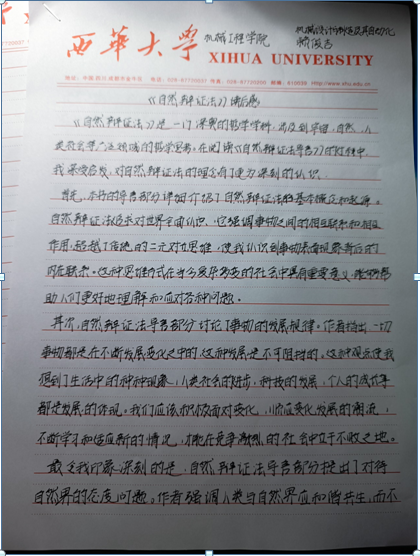 西华大学 机械工程学院
机械设计制造及其自动化
XIHUA UNIVERSITY
《自然辩证法》读后感
《自然辩证法》是一门深奥的哲学学科，涉及到宇宙、自然、人
类社会等广泛领域的哲学思考。在阅读《自然辩证法导言》的过程中，
我深受启发，对自然辩证法的理念有了更为深刻的认识。
首先，本书的导言部分详细介绍了自然辩证法的基本概念和起源。
自然辩证法追求对世界全面认识，它强调事物之间的相互联系和相互
作用，超越了传统的二元对立思维，使我认识到事物表面现象背后的
内在联系。这种思维方式在当今复杂多变的社会中具有重要意义，能够帮
助人们更好地理解和应对各种问题。
其次，自然辩证法导言部分讨论了事物的发展规律。作者指出，一切
事物都是在不断发展变化之中的，这种发展是不可阻挡的。这种观点使我
想到了生活中的种种现象，人类社会的进步，科技的发展，个人的成长等
都是发展的体现。我们应该积极面对变化，顺应变化发展的潮流，
不断学习和适应新的情况，才能在竞争激烈的社会中立于不败之地。
最令我印象深刻的是，自然辩证法导言部分提出了对待
自然界的态度问题。作者强调人类与自然界应和谐共生，而不